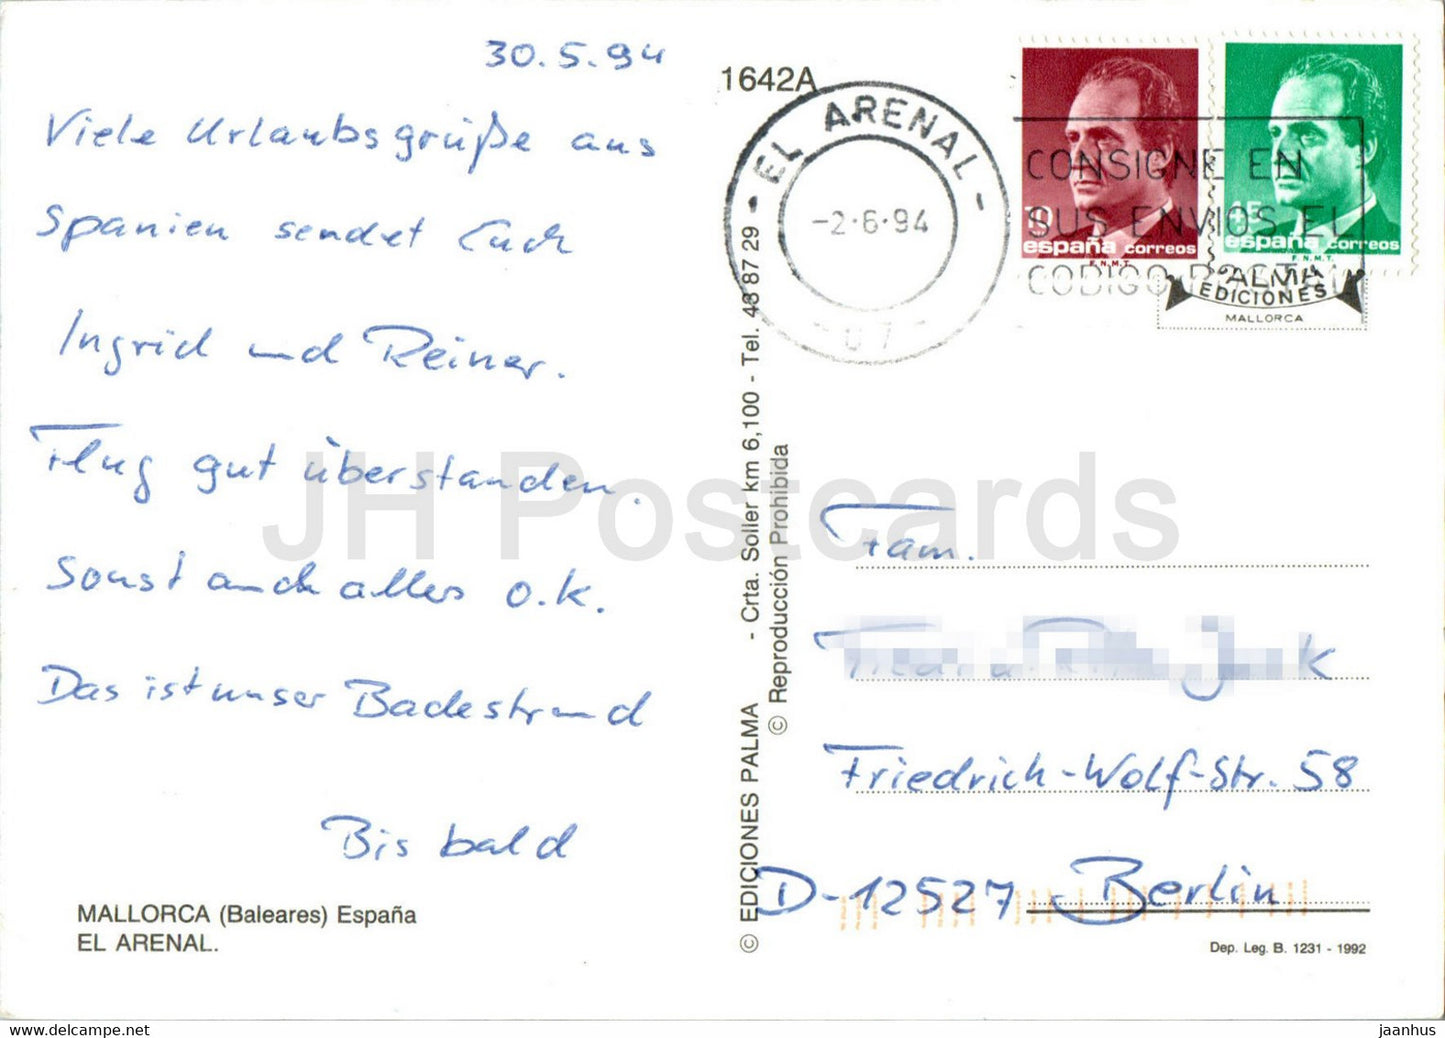 30.5.94
Viele Urlaubsgrüße aus
Spanien sendet Euch
Ingrid und Reiner.
Flug gut überstanden.
Sonst auch alles o.k.
Das ist unser Badestrand
Bis bald
MALLORCA (Baleares) España
EL ARENAL.
1642A
EL ARENAL
-2·6·94
07
CONSIGNE EN
SUS ENVIOS EL
CODIGO POSTAL
10
españa correos
F.N.M.T.
45
españa correos
F.N.M.T.
PALMA
EDICIONES
MALLORCA
© EDICIONES PALMA - Crta. Soller km 6,100 - Tel. 43 87 29 -
© Reproducción Prohibida
Fam.
Friedrich-Wolf-Str. 58
D-12527 Berlin
Dep. Leg. B. 1231 - 1992
JH Postcards
jaanhus
https://www.delcampe.net